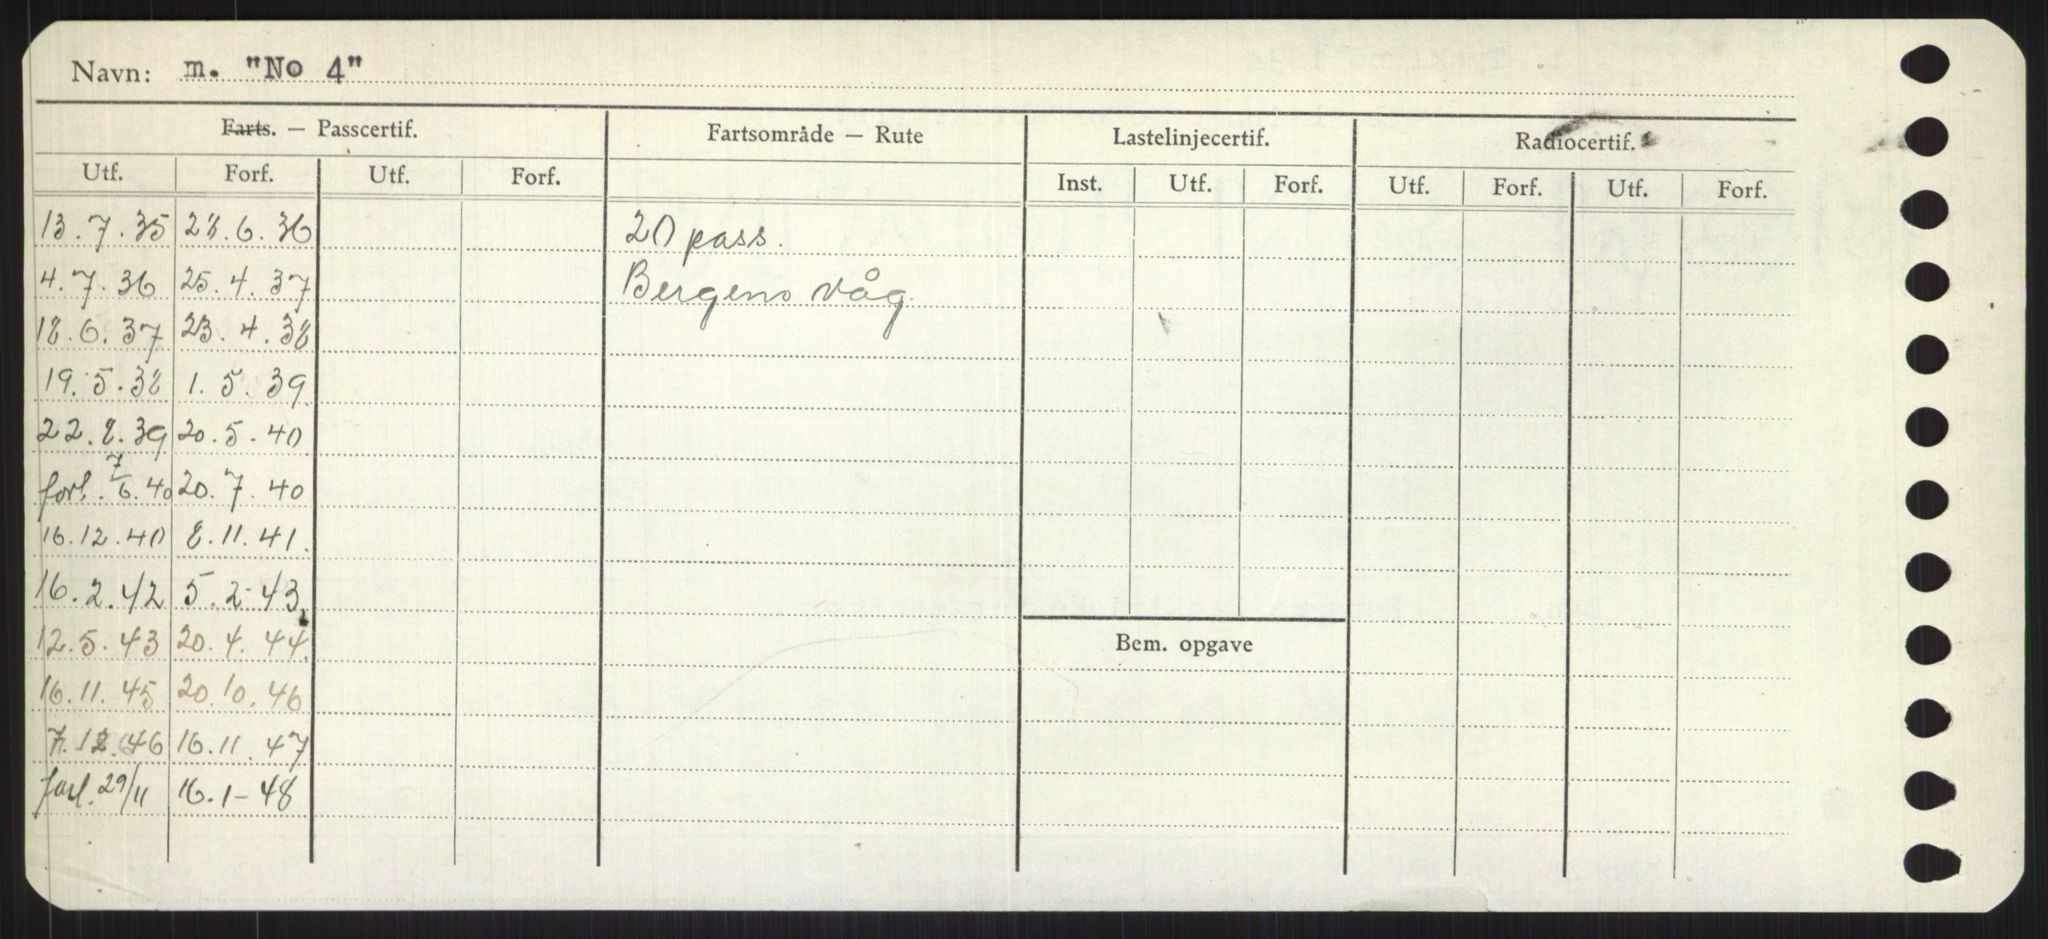 Navn: m. "No 4"
Farts. — Passcertif. Fartsområde — Rute Lastelinjecertif. Radiocertif.
Utf. Forf. Utf. Forf. Inst. Utf. Forf. Utf. Forf. Utf. Forf.
13.7.35 28.6.36 20 pass.
4.7.36 25.4.37 Bergens våg
18.6.37 23.4.38
19.5.38 1.5.39
22.8.39 20.5.40
forl. 7/6.40 20.7.40
16.12.40 8.11.41.
16.2.42 5.2.43
12.5.43 20.4.44
Bem. opgave
16.11.45 20.10.46
7.12.46 16.11.47
forl. 29/11 16.1-48